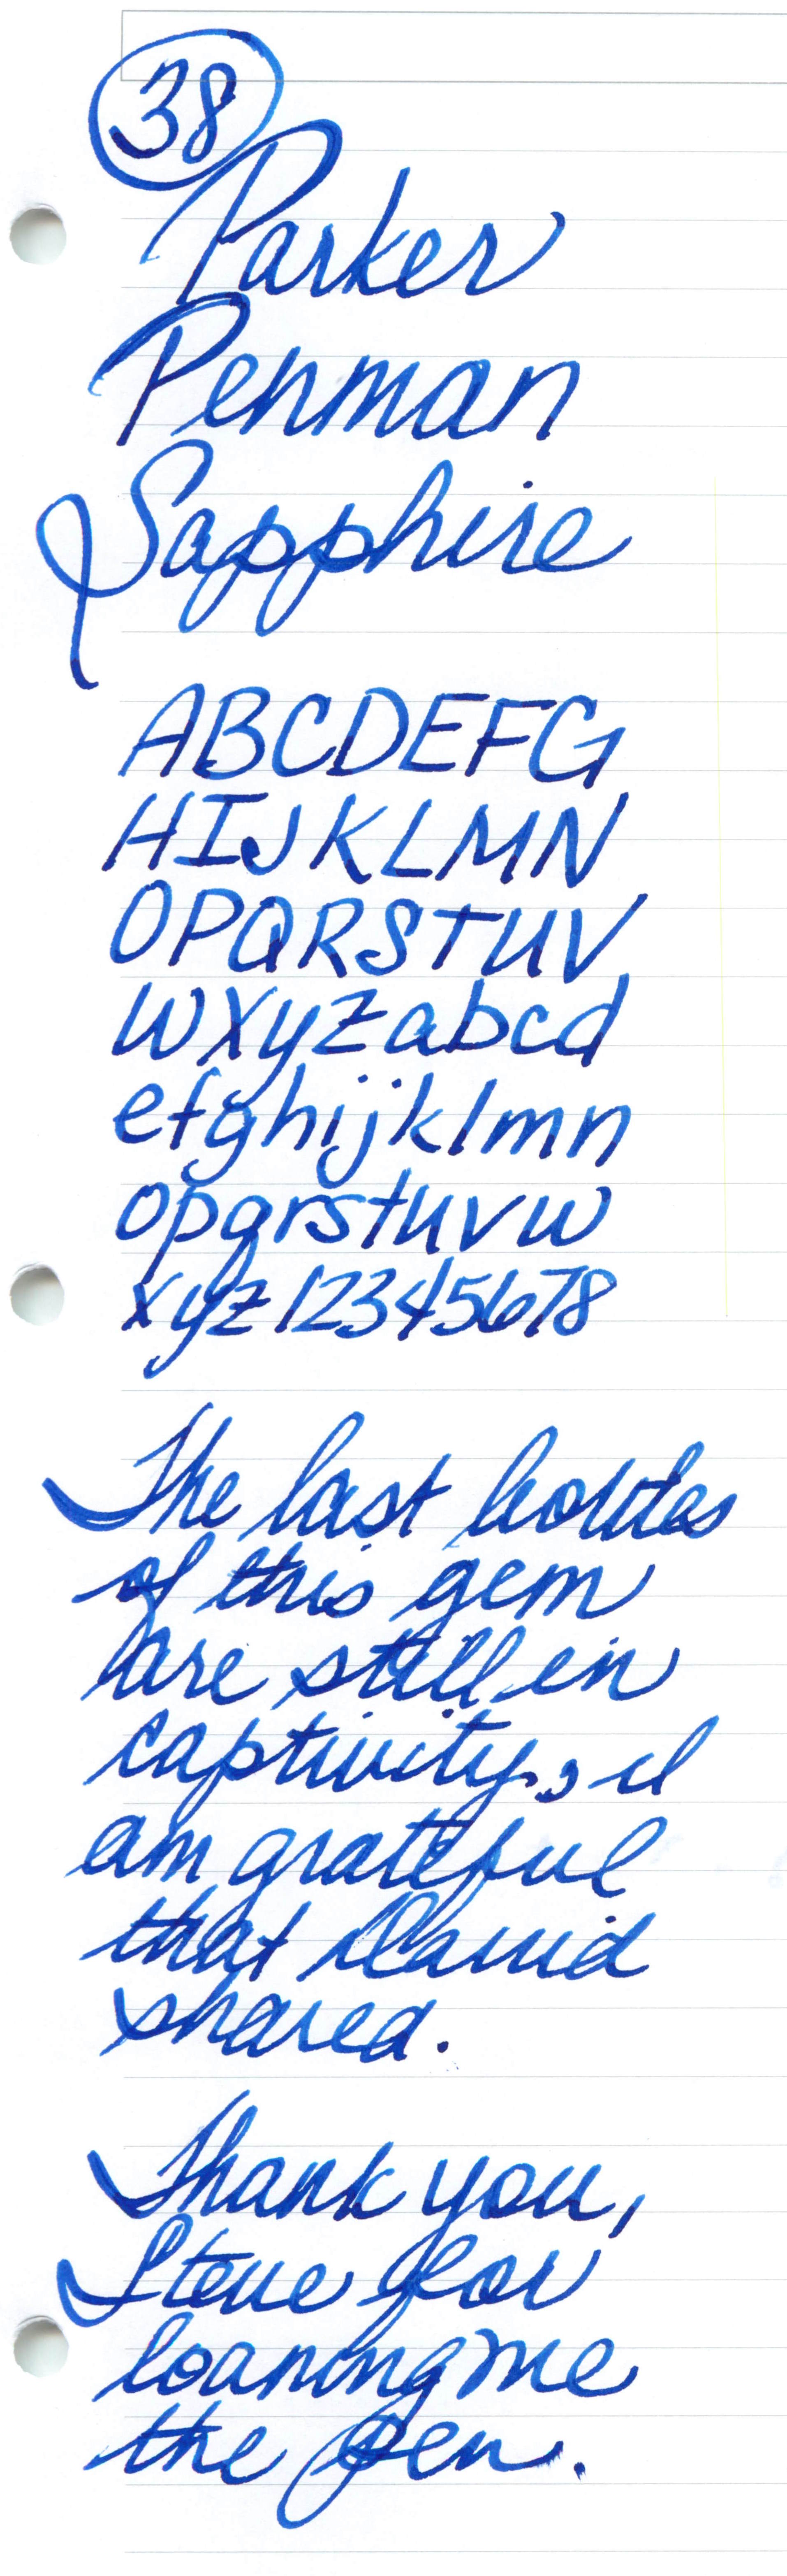 38
Parker
Penman
Sapphire
ABCDEFG
HIJKLMN
OPQRSTUV
WXYZabcd
efghijklmn
opqrstuvw
xyz12345678
The last bottles
of this gem
are still in
captivity, I
am grateful
that David
shared.
Thank you,
Steve for
loaning me
the pen.